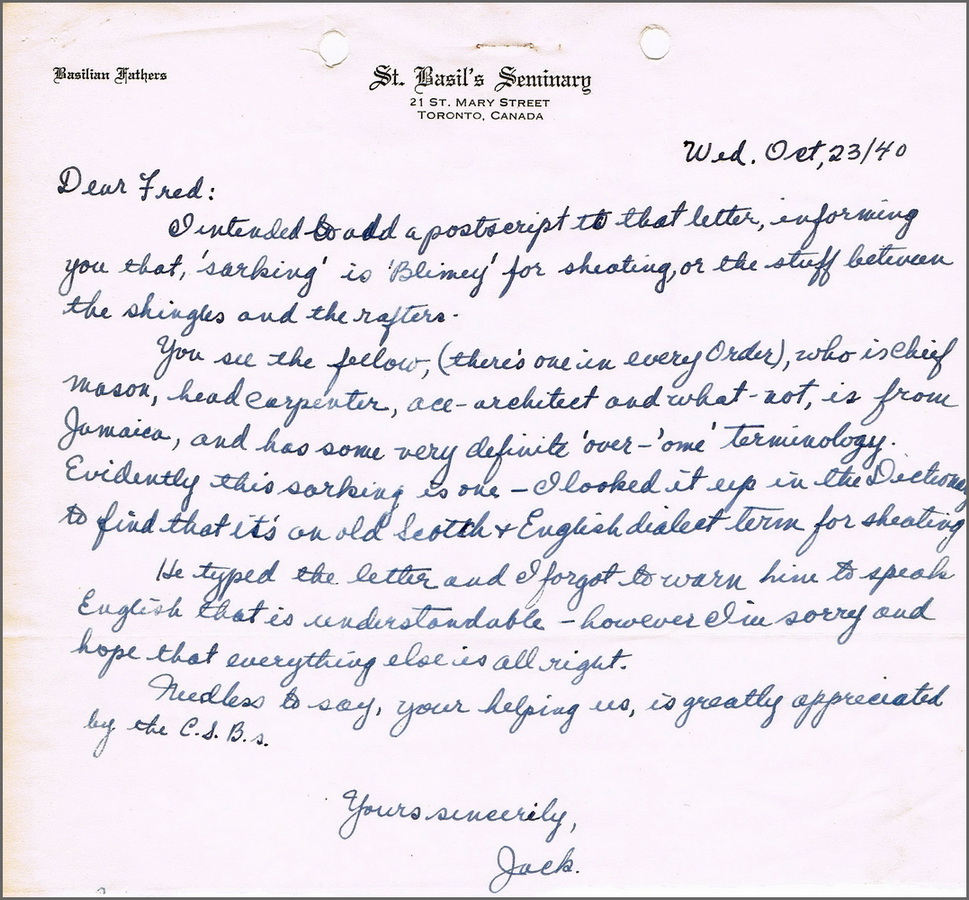 Basilian Fathers
St. Basil's Seminary
21 St. Mary Street
Toronto, Canada
Wed. Oct, 23/40
Dear Fred:
I intended to add a postscript to that letter, informing
you that, 'sarking' is 'Blimey' for sheating, or the stuff between
the shingles and the rafters.
You see the fellow, (there's one in every Order), who is chief
mason, head carpenter, ace-architect and what-not, is from
Jamaica, and has some very definite 'over-'ome' terminology.
Evidently this sarking is one – I looked it up in the Dictionary
to find that it's an old Scotch & English dialect term for sheating
He typed the letter and I forgot to warn him to speak
English that is understandable – however I'm sorry and
hope that everything else is all right.
Needless to say, your helping us, is greatly appreciated
by the C.S.B.s.
Yours sincerily,
Jack.